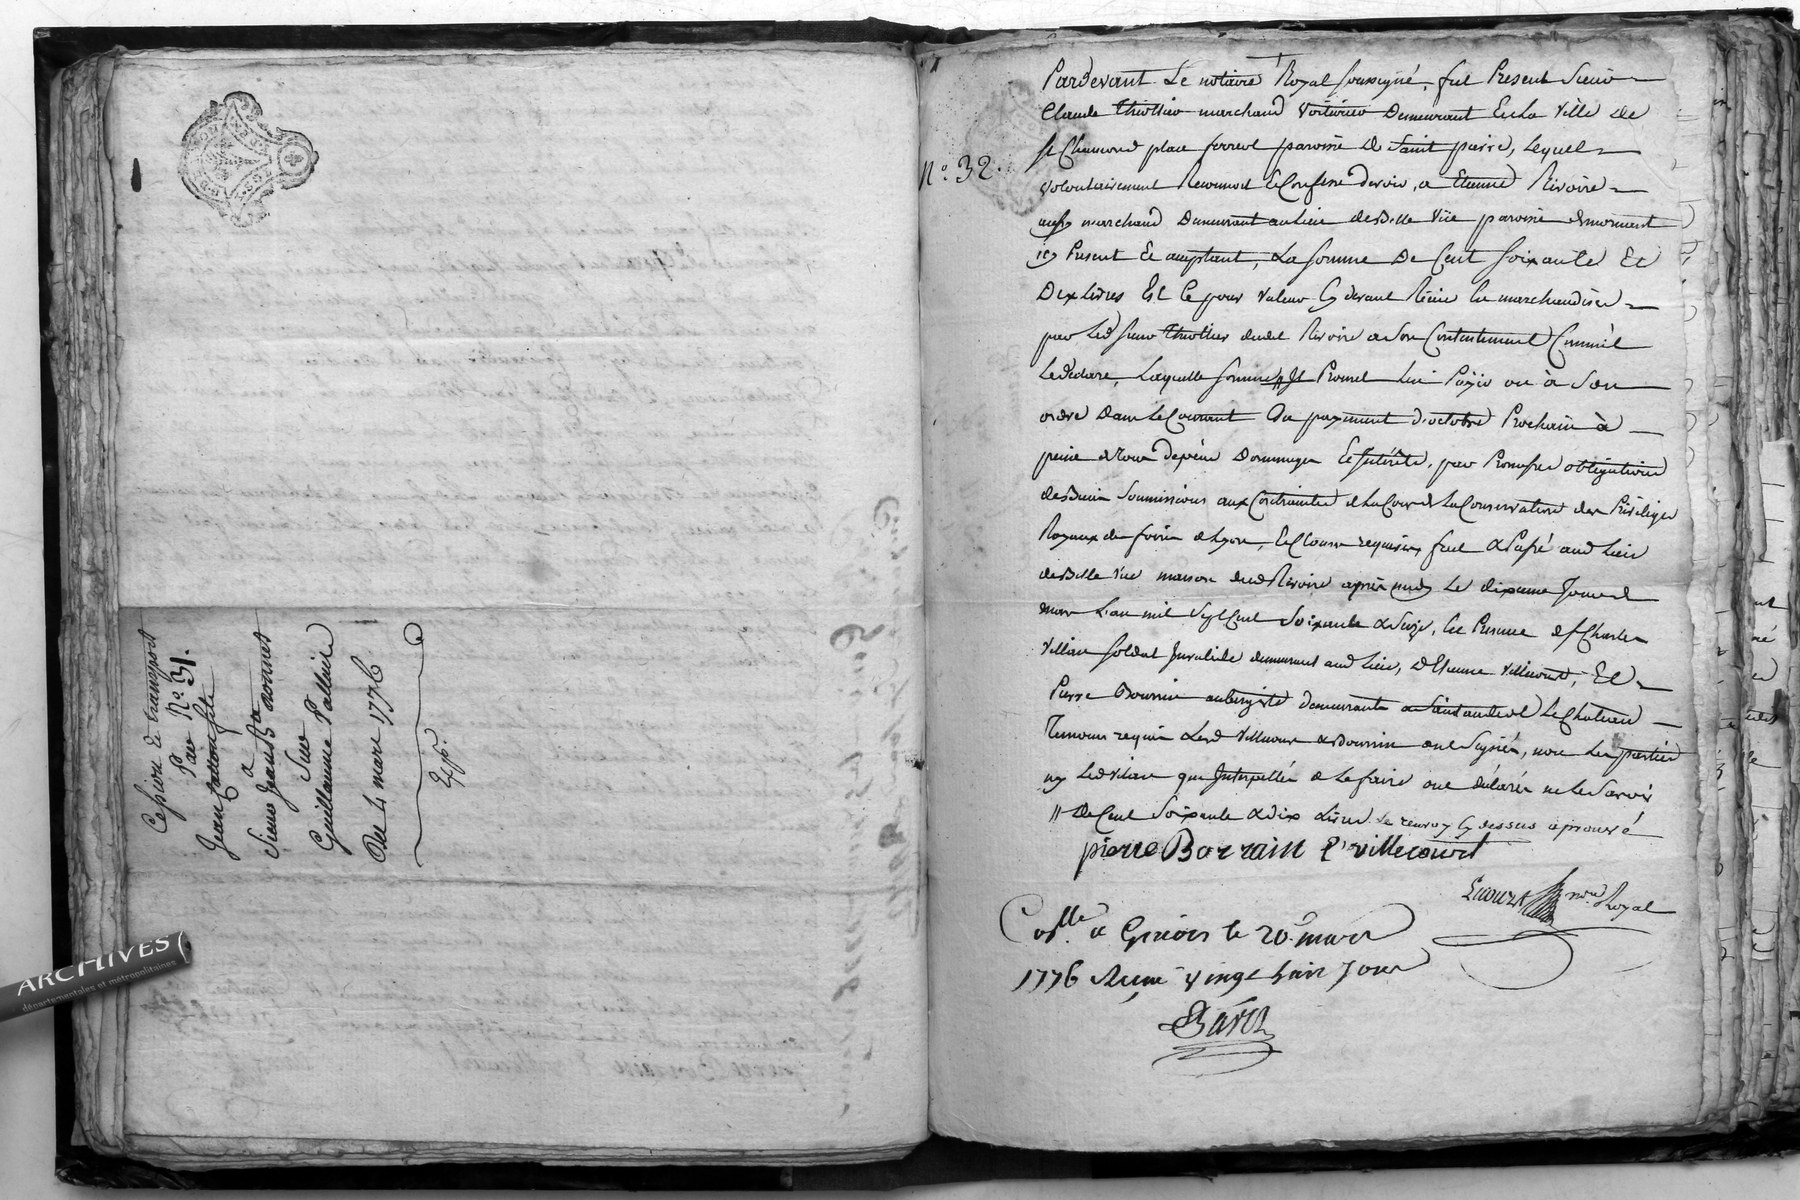 Cession de transport
Par No. 31.
Jean fils
a
Sieur Jean Bte
Sur
Guillaume Palluire
Du 4 mars 1776
Exp.
ARCHIVES
départementales et métropolitaines
No. 32.
Pardevant Le notaire Royal soussigné, fut Present Sieur
Claude Thiollier marchand voiturier Demeurant En La Ville de
St Chamond place ferreol paroisse De Saint pierre, Lequel
volontairement Reconnoit & Confesse devoir, a Etienne Rivoire
aussy marchand Demeurant au Lieu de Belle Vüe paroisse
icy Present & aceptant, La Somme De Cent Soixante Et
Dix Livres Et Ce pour valeur Cy devant Reçüe En marchandises
par Led Sieur Thiollier dud Rivoire a Son Contentement Comme il
Le declare, Laquelle Somme // Il Promet Lui Payer ou à Son
ordre Dans Le Courant du payement d'octobre Prochain à
peine de Tous Depens Dommages & Interets, par Promesse obligation
de Biens Soumissions aux Contraintes de La Cour de La Conservation des Privileges
Royaux des foires de Lyon, & Clauses requises, fait & Passé aud Lieu
de Belle Vüe maison dud Rivoire après midy Le dixieme Jour de
mars L'an mil Sept Cent Soixante & Seize, En Presence de Sr Charles
Villiar Soldat Invalide demeurant aud Lieu, d'Etienne Villecourt, Et
Pierre Bourrin aubergiste demeurants a Saint andeol Le Chateau
Temoins requis Lesd Villecourt & Bourrin ont Signés, non Les parties
ny Led Villiar que Interpellés de Le faire ont declarés ne Le Savoir
// de Cent Soixante & dix Livres Le renvoy Cy dessus aprouvé
pierre Borrain E villecourt
nre. Royal
Conllé. a Givors le 20. mars
1776 Reçu vingt huit Sous